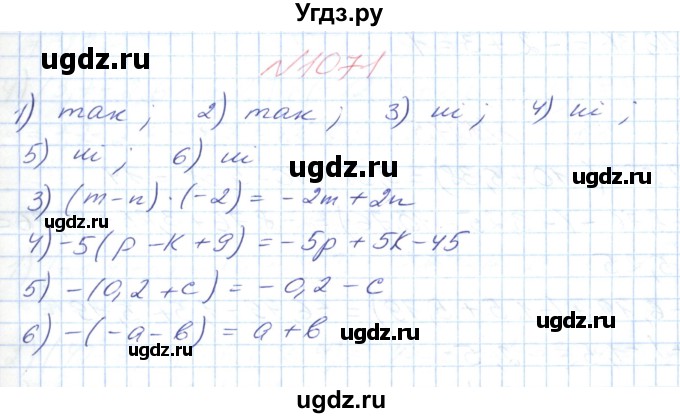 Угдз.ру
№1071
1) так ; 2) так ; 3) ні ; 4) ні ;
5) ні ; 6) ні
3) (m-n)·(-2) = -2m+2n
4) -5(p-k+9) = -5p+5k-45
5) -(0,2+c) = -0,2-c
6) -(-a-b) = a+b
ugdz.ru
ugdz.ru
ugdz.ru
ugdz.ru
ugdz.ru
ugdz.ru
ugdz.ru
ugdz.ru
ugdz.ru
ugdz.ru